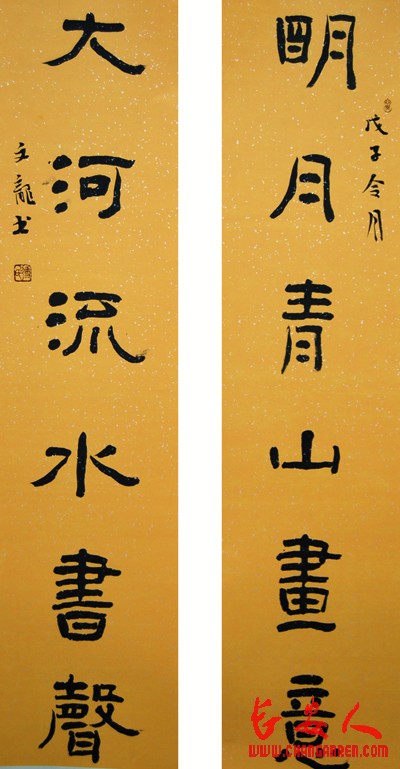 明月青山畫意
戊子令月
大河流水書聲
文龍书
长安人
WWW.CHANGANREN.COM